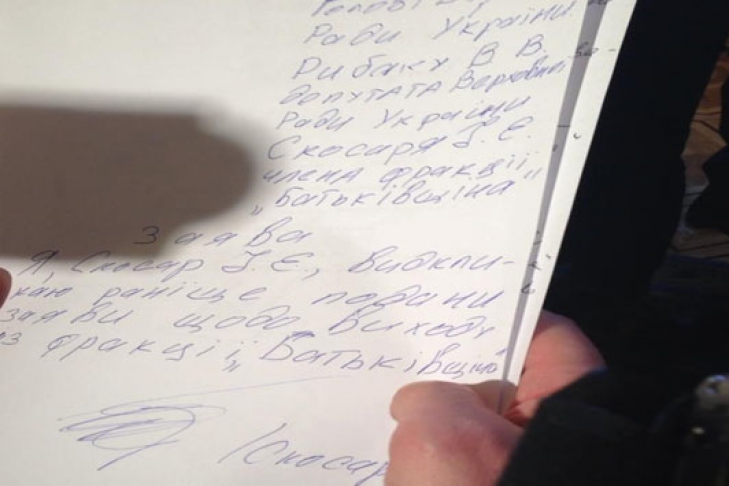 Ради України
Рибаку В. В.
депутата Верховної
Ради України
Скосаря Ј. Є.
члена фракції
„Батьківщина"
Заява
Я, Скосар Ј. Є., відкли-
каю раніше подани
заяви щодо виходу
із фракції „Батьківщина"
/Скосар